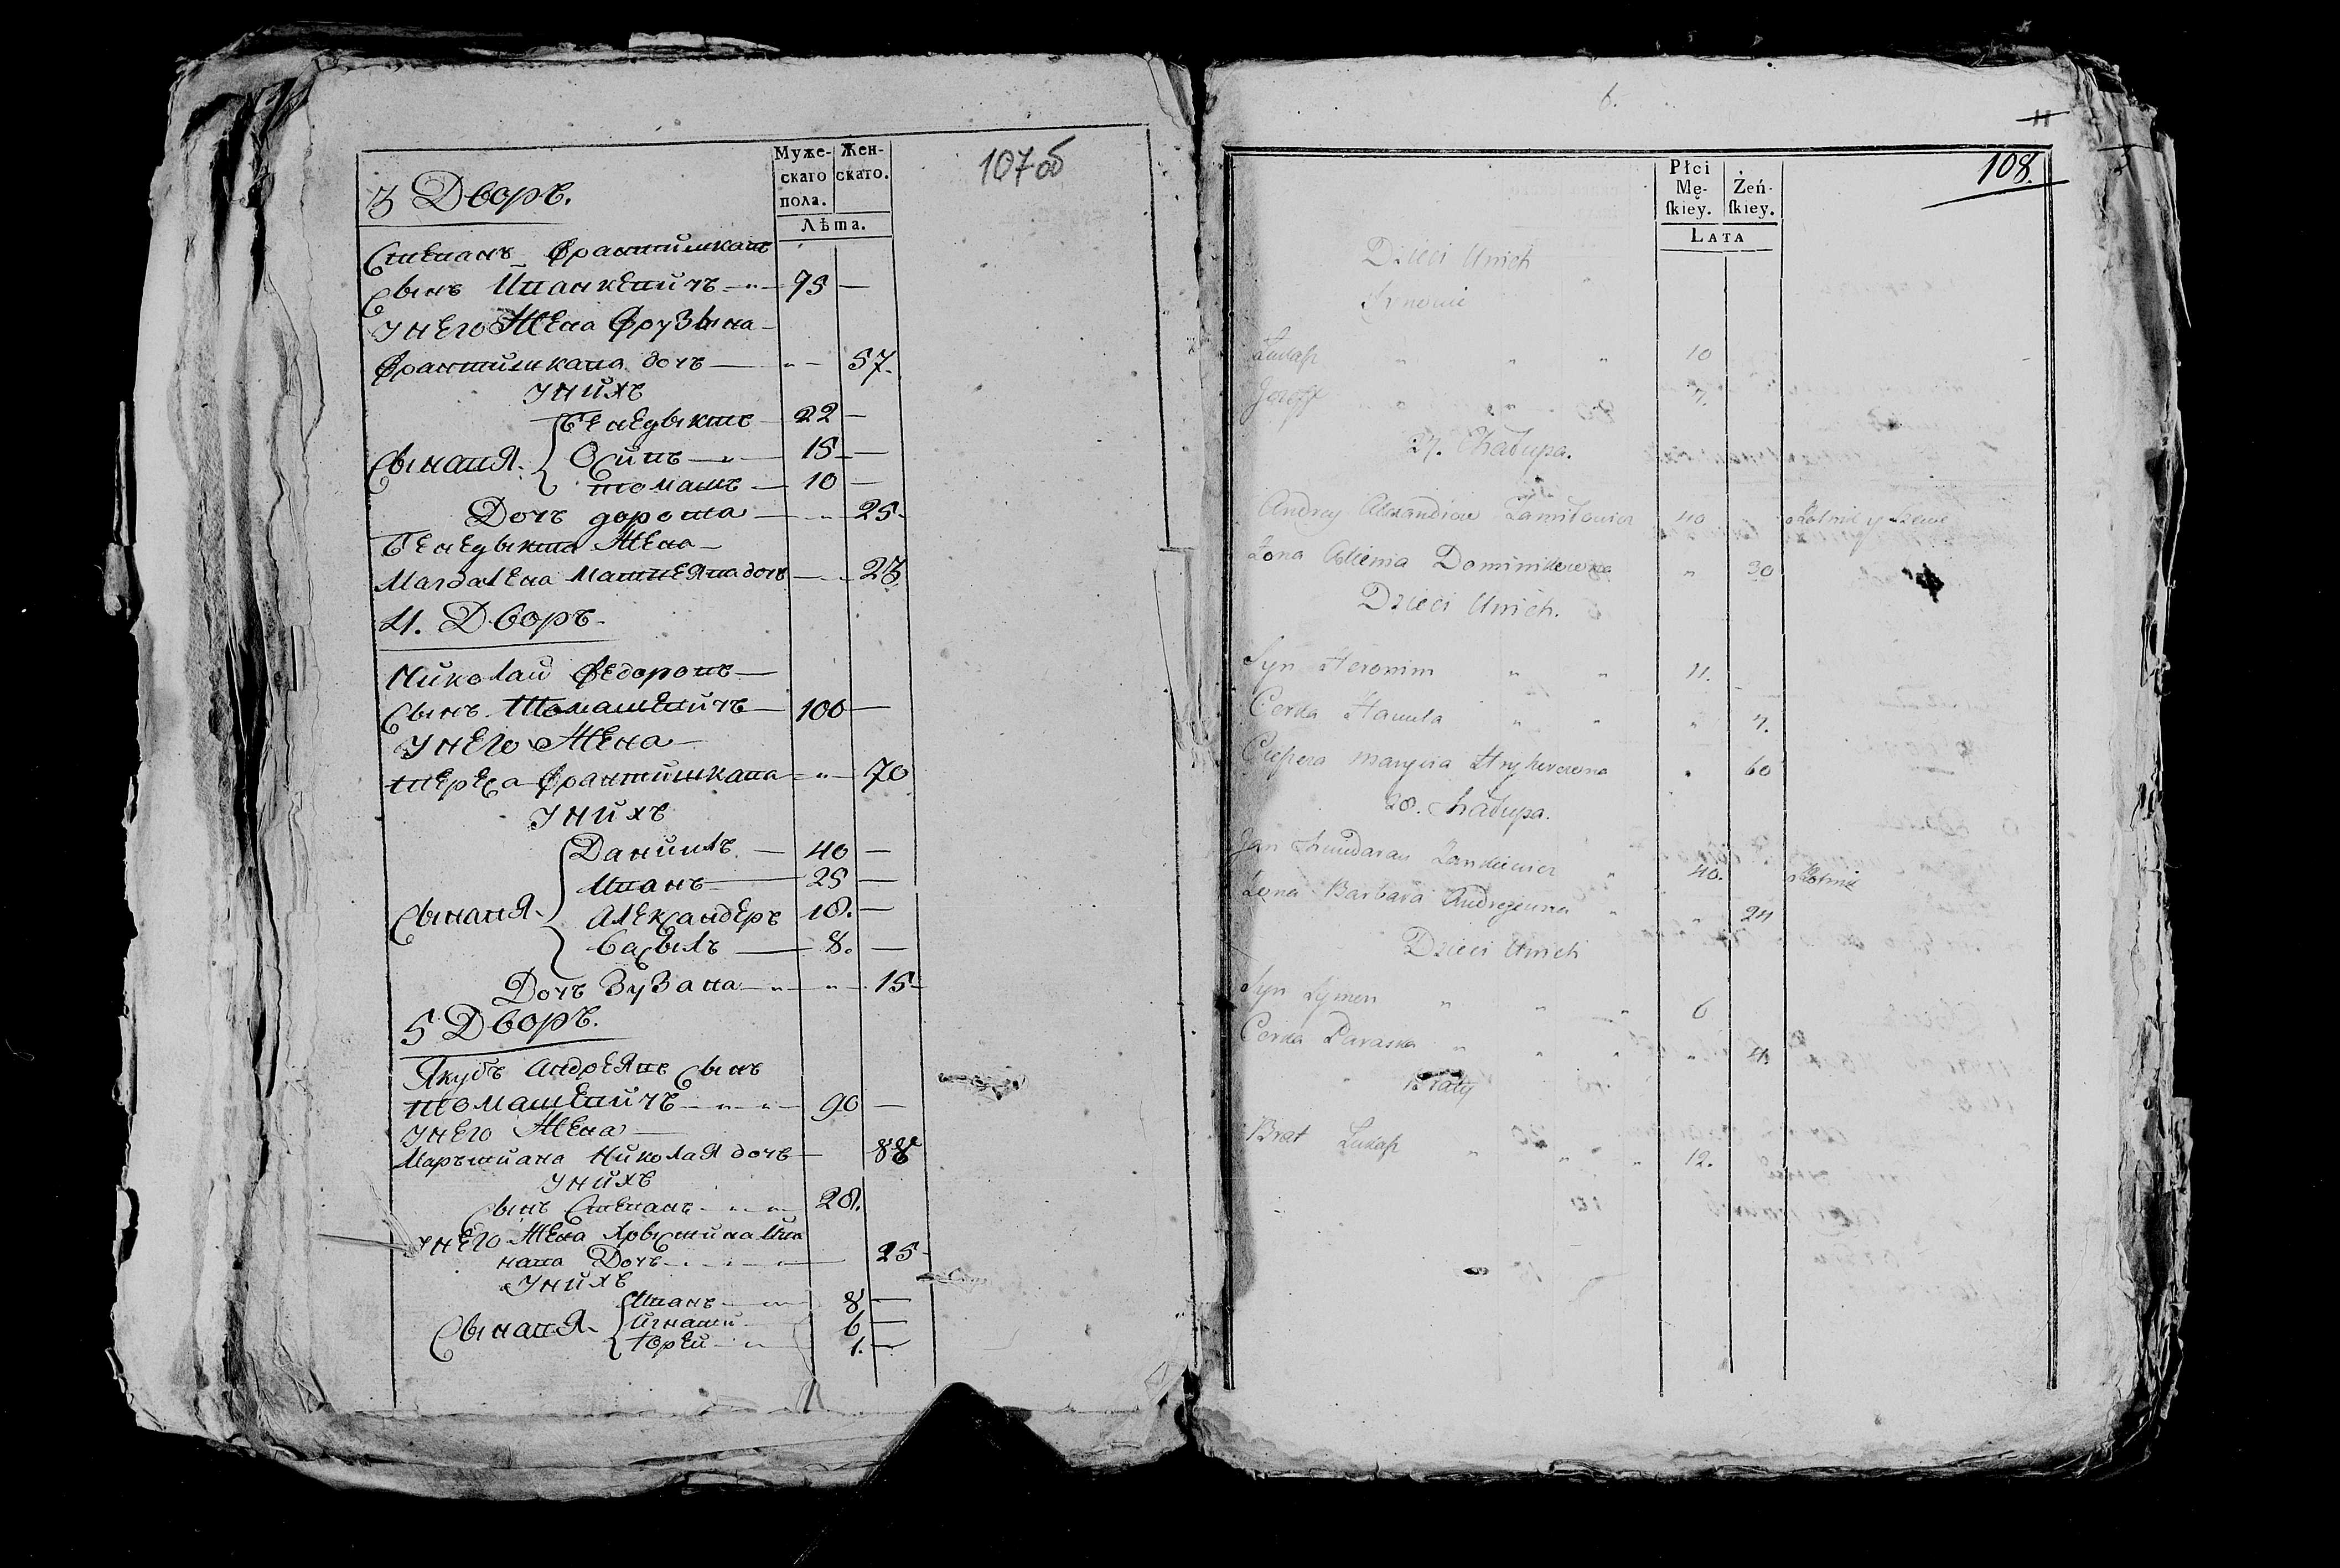 107об
Муже-
скаго
пола.
Жен-
скаго.
Лѣта.
3 Дворъ.
Степанъ Франтишкавъ
Сынъ Иванкевичъ 75
У него Жена Фрузына
Франтишкава дочъ 57.
У нихъ
Сынавя. Бенедыктъ 22
Осипъ 15
Томашъ 10
Дочъ дорота 25
Бенедыкта Жена
Магдалена Матвеява дочъ 23
4. Дворъ
Николай Федоровъ
Сынъ Томашевичъ 100
У него Жена
Тереса Франтишкава 70
У нихъ
Данииль 40
Иванъ 25
Сынавя. Александеръ 18.
Васыль 8.
Дочъ Зузана 15
5 Дворъ.
Якубъ Андреявъ Сынъ
Томашевичъ 90
У него Жена
Марътиана Николая дочъ 88
У нихъ
Сынъ Степанъ 28.
У него Жена Хрвыстина Ива
нава Дочъ 25
У нихъ
Иванъ 8
Сынавя Игнатй 6
Юрей 1.
6.
11
108.
Płci
Mę-
ſkiey.
Żeń-
ſkiey.
LATA
Dzieci Unich
Synowie
Łukaſz 10
Jozeff 7.
27. Chałupa.
Andrey Alexandrow 40 Rolnik y Szewc
Zona Dominikowna 30
Dzieci Unich.
Syn Heronim 11.
Corka 7.
Maryna Hryhorewna 60
28. Chałupa.
Jan Zankiewicz 40. Rolnik
Zona Barbara Andrzejewna 24
Dzieci Unich
Syn Symon 6
Corka Paraska 4.
Braty
Brat Łukaſz 12.